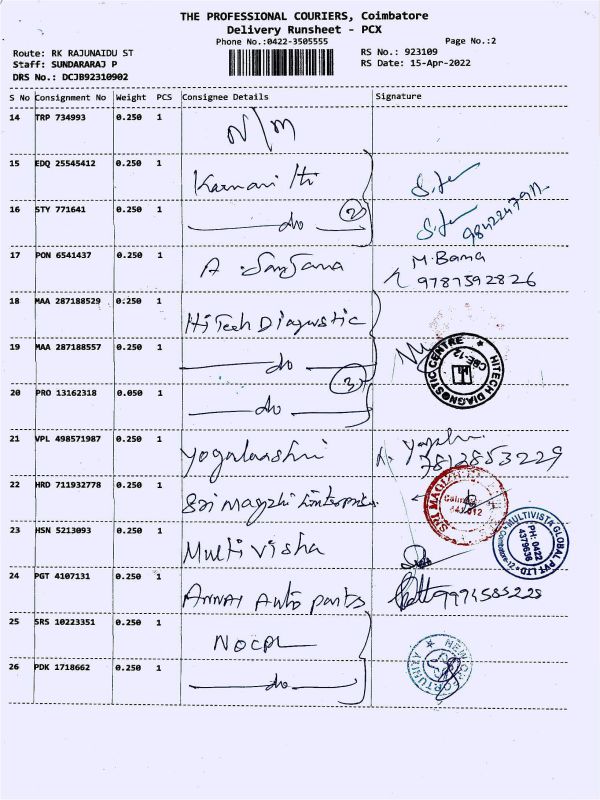 THE PROFESSIONAL COURIERS, Coimbatore
Delivery Runsheet - PCX
Phone No.:0422-3505555 Page No.:2
Route: RK RAJUNAIDU ST RS No.: 923109
Staff: SUNDARARAJ P RS Date: 15-Apr-2022
DRS No.: DCJB92310902
S No Consignment No Weight PCS Consignee Details Signature
14 TRP 734993 0.250 1 N/M
15 EDQ 25545412 0.250 1
16 STY 771641 0.250 1 do 2
17 PON 6541437 0.250 1 A Sanjana M.Bama
9787592826
18 MAA 287188529 0.250 1 HiTech Diagnostic
19 MAA 287188557 0.250 1 do 3 HITECH DIAGNOSTIC CENTRE CBE-12
20 PRO 13162318 0.050 1 do
21 VPL 498571987 0.250 1 Yogalaashri
7812853229
22 HRD 711932778 0.250 1 Sri Magizhi Enterprises
23 HSN 5213093 0.250 1 Multi Visha MULTIVISTA GLOBAL PVT LTD
PH: 0422
4379638
24 PGT 4107131 0.250 1 Annai Auto parts
25 SRS 10223351 0.250 1 NOCPL
26 PDK 1718662 0.250 1 do